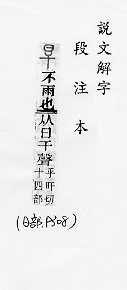 說文解字
段注本
旱不雨也从日干聲
乎旰切
十四部
(日部, P308)